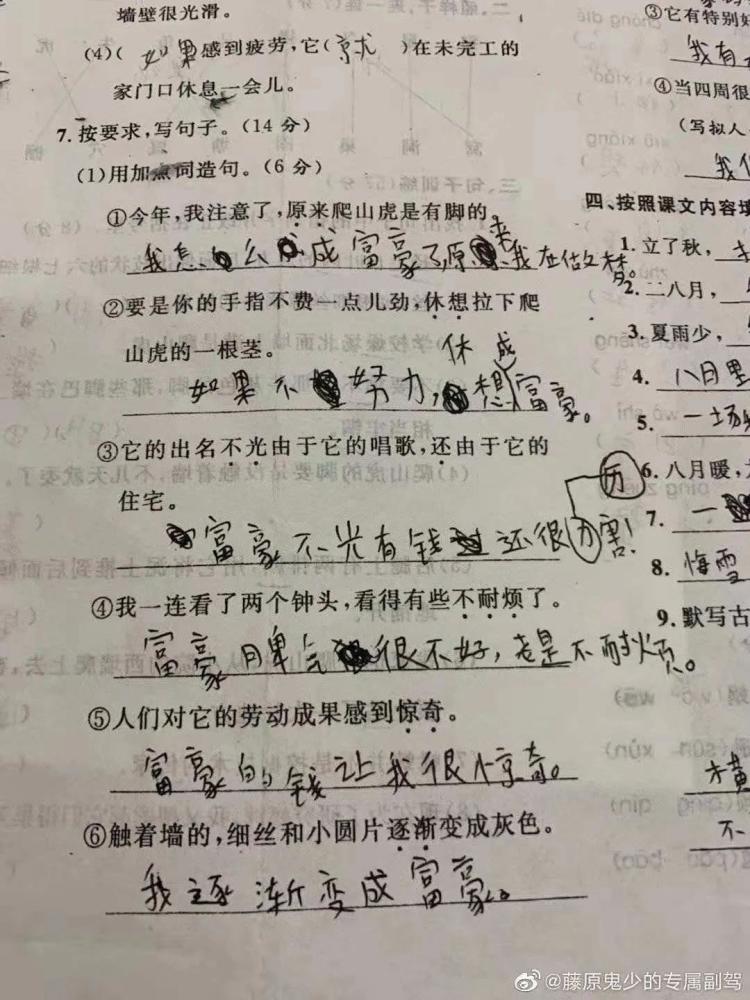 墙壁很光滑。
(4)(如果)感到疲劳,它(京尤)在未完工的
家门口休息一会儿。
7. 按要求,写句子。(14 分)
(1)用加点词造句。(6 分)
①今年,我注意了,原来爬山虎是有脚的。
我怎么成富豪了原来我在做梦。
②要是你的手指不费一点儿劲,休想拉下爬
山虎的一根茎。
如果不努力,休想成富豪。
③它的出名不光由于它的唱歌,还由于它的
住宅。
富豪不光有钱还很历害!
④我一连看了两个钟头,看得有些不耐烦了。
富豪脾气很不好,老是不耐烦。
⑤人们对它的劳动成果感到惊奇。
富豪的钱让我很惊奇。
⑥触着墙的,细丝和小圆片逐渐变成灰色。
我逐渐变成富豪。
③它有特别好
我有
④当四周很
(写拟人
我
四、按照课文内容填
1. 立了秋,
2. 二八月,
3. 夏雨少,
4. 八日里
5. 一场
6. 八月暖,
7. 一
8. 悔雪
9. 默写古
横
不
@藤原鬼少的专属副驾